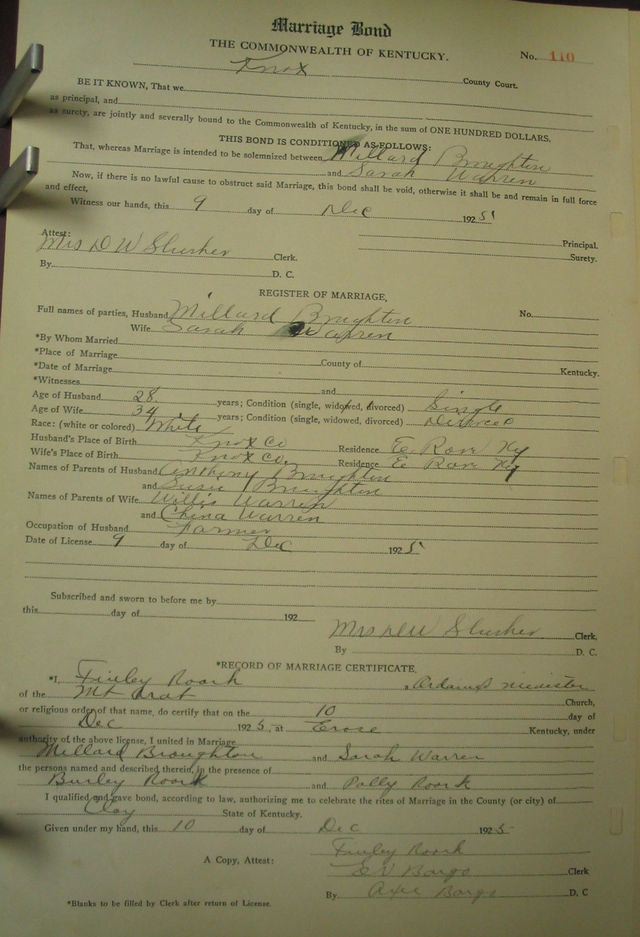 Marriage Bond
THE COMMONWEALTH OF KENTUCKY.
No. 110
Knox County Court.
BE IT KNOWN, That we
as principal, and
as surety, are jointly and severally bound to the Commonwealth of Kentucky, in the sum of ONE HUNDRED DOLLARS,
THIS BOND IS CONDITIONED AS FOLLOWS:
That, whereas Marriage is intended to be solemnized between Millard Broughton
and Sarah Warren
Now, if there is no lawful cause to obstruct said Marriage, this bond shall be void, otherwise it shall be and remain in full force
and effect,
Witness our hands, this 9 day of Dec 1925
Principal.
Attest:
Mrs D W Slusher Clerk.
Surety.
By D. C.
REGISTER OF MARRIAGE,
Full names of parties, Husband Millard Broughton No.
Wife Sarah Warren
*By Whom Married
*Place of Marriage County of Kentucky.
*Date of Marriage
*Witnesses and
Age of Husband 28 years; Condition (single, widowed, divorced) Single
Age of Wife 34 years; Condition (single, widowed, divorced) Divorced
Race: (white or colored) White
Husband's Place of Birth Knox Co Residence Ky
Wife's Place of Birth Knox Co. Residence Ky
Names of Parents of Husband Anthony Broughton
and Susie Broughton
Names of Parents of Wife Willis Warren
and China Warren
Occupation of Husband Farmer
Date of License 9 day of Dec 1925
Subscribed and sworn to before me by
this day of 192
Mrs D W Slusher Clerk.
By D. C.
*RECORD OF MARRIAGE CERTIFICATE.
*I, Finley Roark, Ordained minister
of the Mt Arat Church,
or religious order of that name, do certify that on the 10 day of
Dec 1925, at Erose Kentucky, under
authority of the above license, I united in Marriage
Millard Broughton and Sarah Warren
the persons named and described therein, in the presence of
Burley Roark and Polly Roark
I qualified and gave bond, according to law, authorizing me to celebrate the rites of Marriage in the County (or city) of
Clay State of Kentucky.
Given under my hand, this 10 day of Dec 1925
Finley Roark
A Copy, Attest: Clerk
By D. C
*Blanks to be filled by Clerk after return of License.